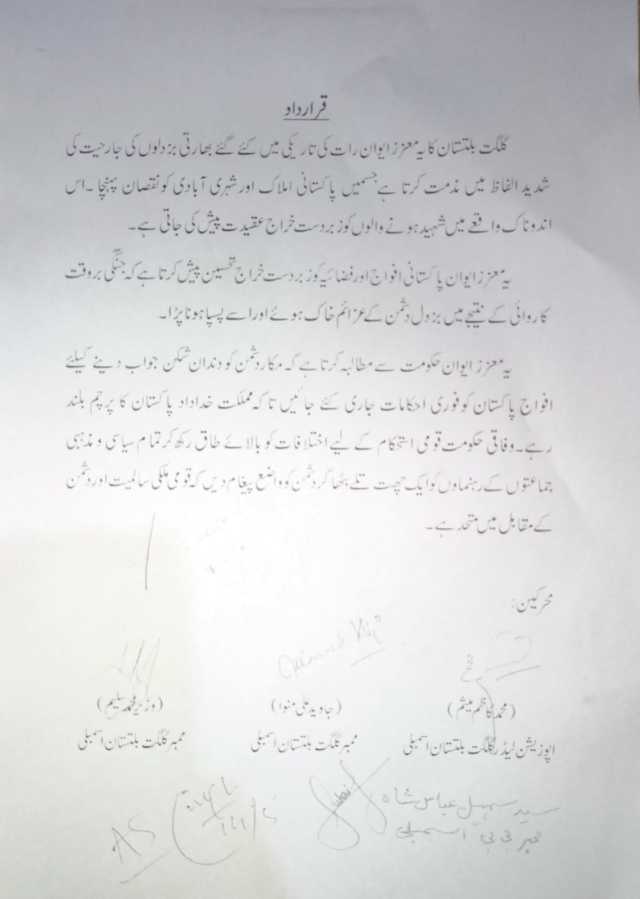 قرارداد
گلگت بلتستان کا یہ معزز ایوان رات کی تاریکی میں کئے گئے بھارتی بزدلوں کی جارحیت کی
شدید الفاظ میں مذمت کرتا ہے جسمیں پاکستانی املاک اور شہری آبادی کو نقصان پہنچا ۔اس
اندوناک واقعے میں شہید ہونے والوں کو زبردست خراج عقیدت پیش کی جاتی ہے۔
یہ معزز ایوان پاکستانی افواج اور فضائیہ کو زبردست خراج تحسین پیش کرتا ہے کہ جنگی بروقت
کاروائی کے نتیجے میں بزدل دشمن کے عزائم خاک ہوئے اور اسے پسپا ہونا پڑا۔
یہ معزز ایوان حکومت سے مطالبہ کرتا ہے کہ مکار دشمن کو دندان شکن جواب دینے کیلئے
افواج پاکستان کو فوری احکامات جاری کئے جائیں تاکہ مملکت خداداد پاکستان کا پرچم بلند
رہے۔ وفاقی حکومت قومی استحکام کے لیے اختلافات کو بالائے طاق رکھ کر تمام سیاسی و مذہبی
جماعتوں کے رہنماوں کو ایک چھت تلے بٹھا کر دشمن کو واضع پیغام دیں کہ قومی ملکی سالمیت اور دشمن
کے مقابل میں متحد ہے۔
محرکین:
(محمد کاظم میثم) (جاوید علی منوا) (وزیر محمد سلیم)
اپوزیشن لیڈر گلگت بلتستان اسمبلی ممبر گلگت بلتستان اسمبلی ممبر گلگت بلتستان اسمبلی
سید سہیل عباس شاہ
ممبر جی بی اسمبلی
AS